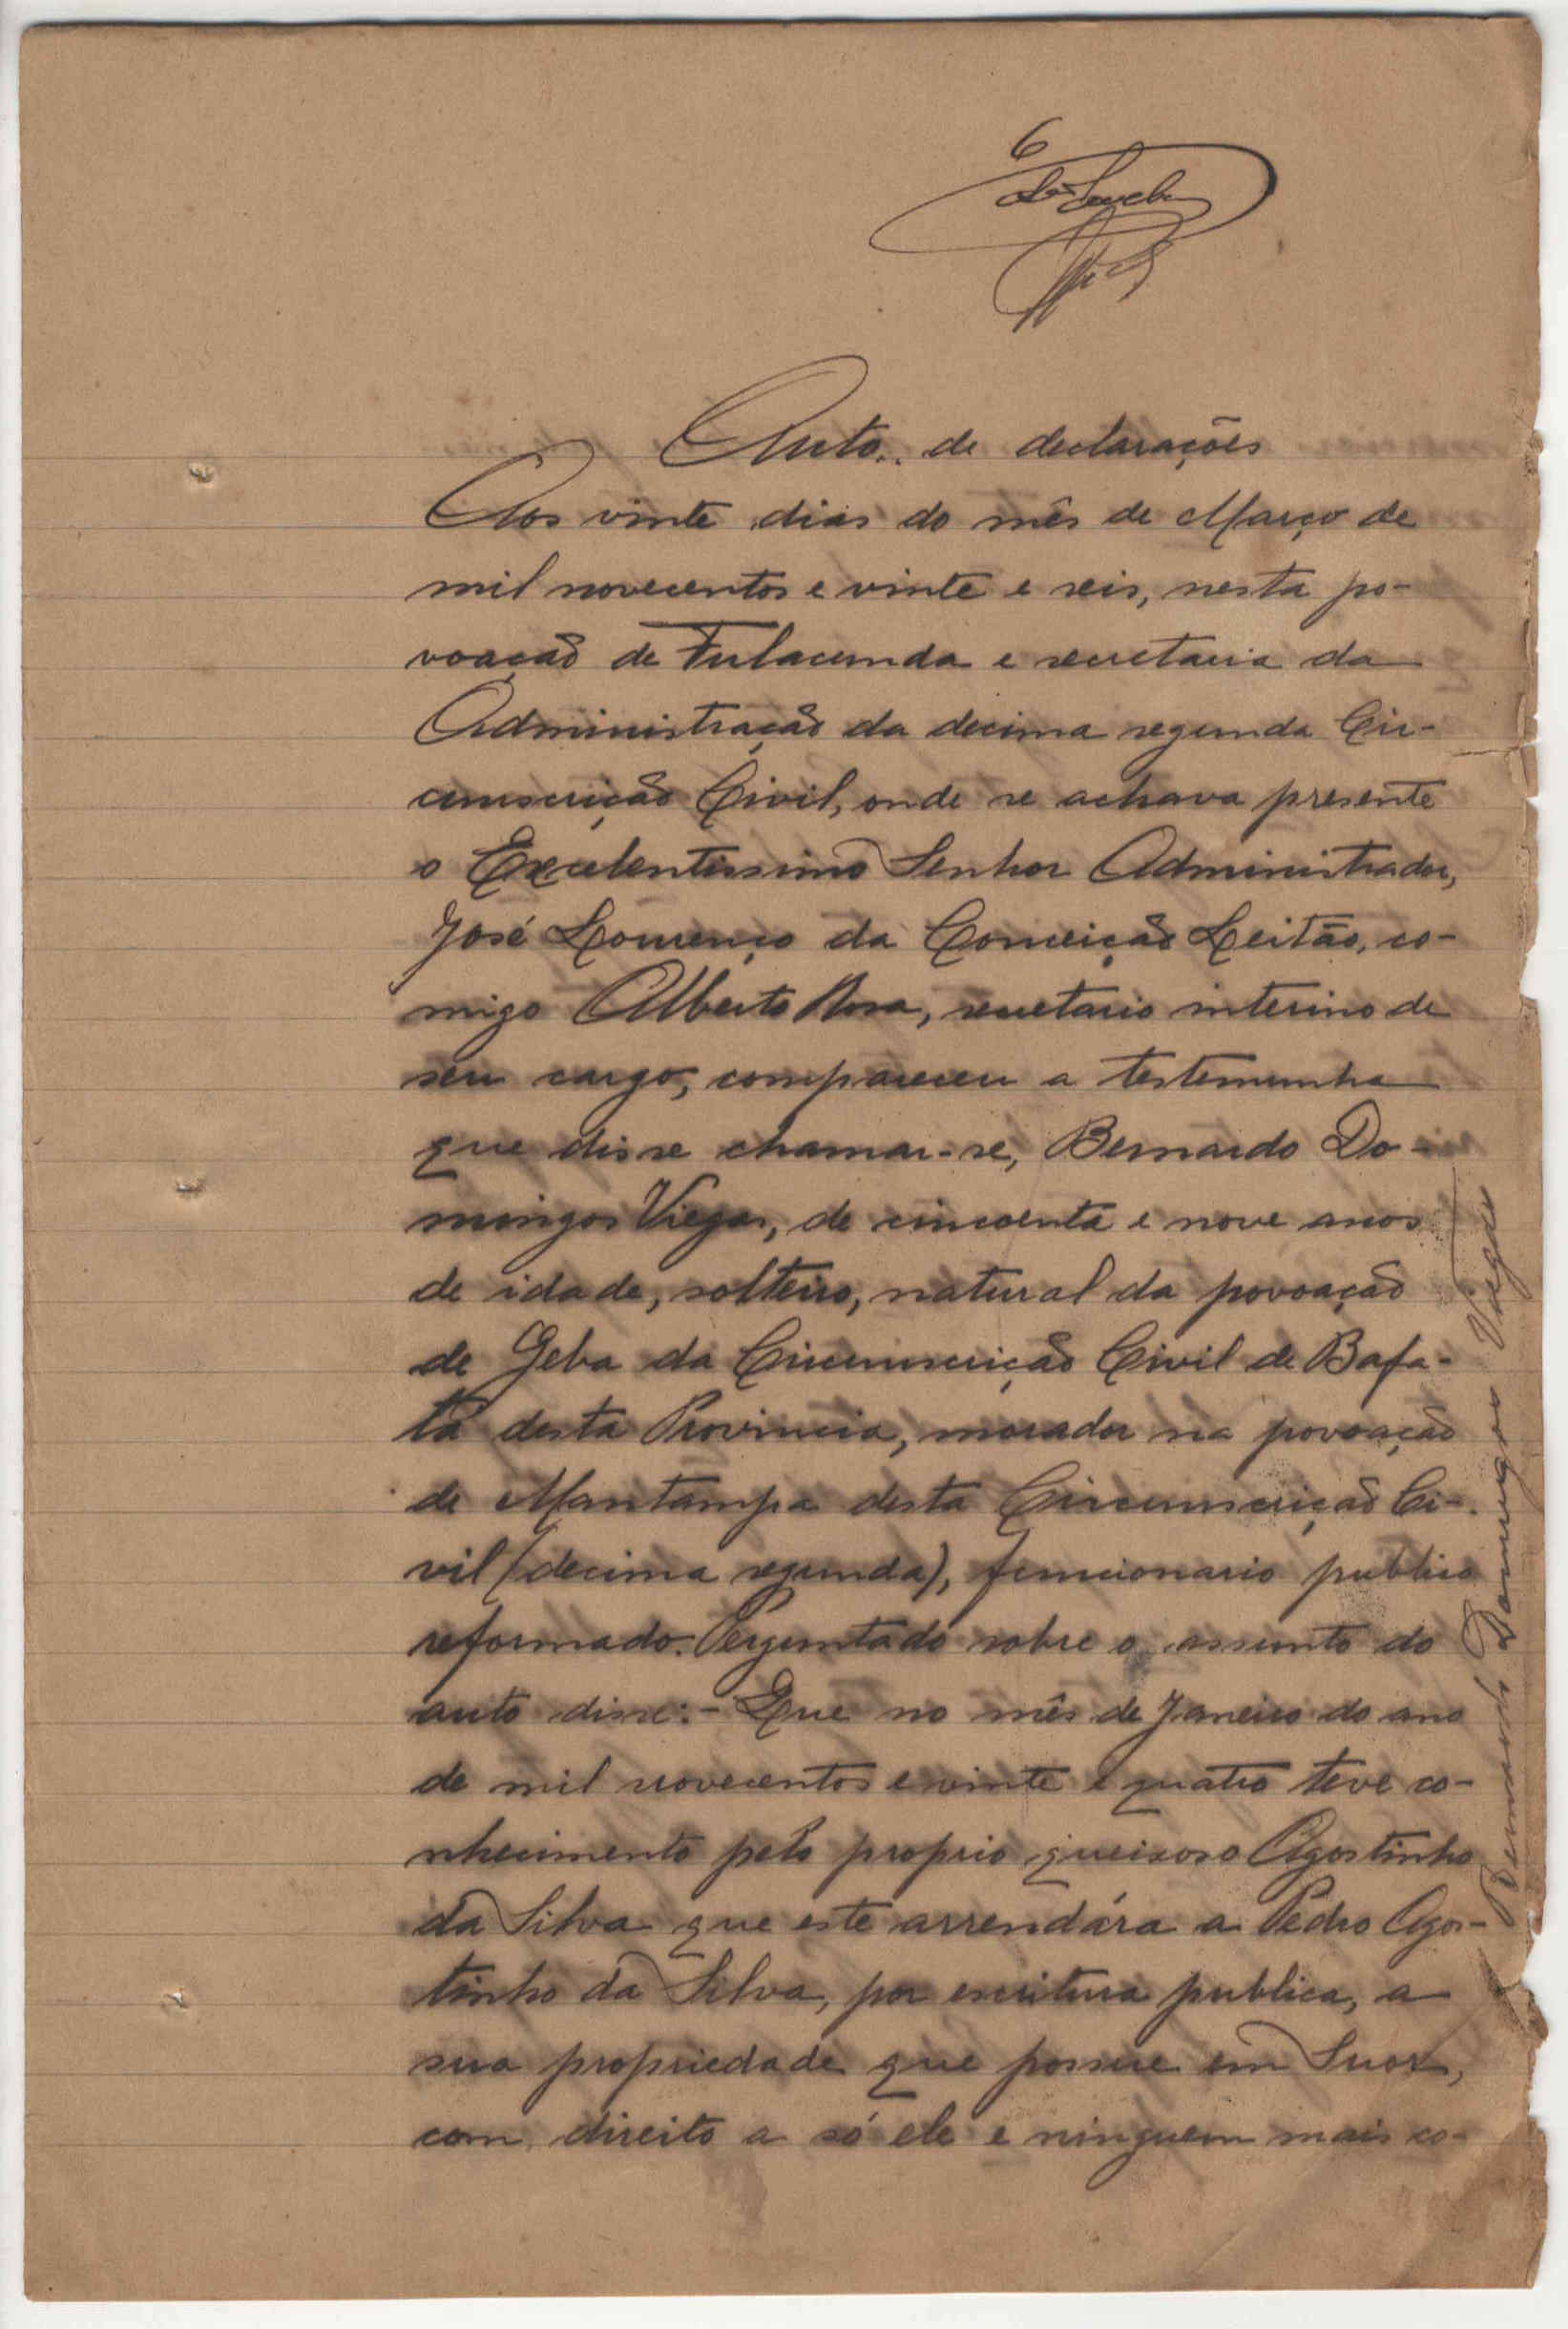 6
Auto.. de declarações
Aos vinte dias do mês de Março de
mil novecentos e vinte e seis, nesta po-
voação de Fulacunda e secretaria da
Administração da decima segunda Cir-
cunscrição Civil, onde se achava presente
o Excelentissimo Senhor Administrador,
José Lourenço da Conceição Leitão, co-
migo Alberto Rosa, secretario interino de
seu cargo, compareceu a testemunha
que disse chamar-se, Bernardo Do-
mingos Viegas, de cincoenta e nove anos
de idade, solteiro, natural da povoação
de Geba da Circunscrição Civil de Bafa-
tá desta Provincia, morador na povoação
de Mantampa desta Circunscrição Ci-
vil (decima segunda), funcionario publico
reformado. Perguntado sobre o assunto do
auto disse:- Que no mês de Janeiro do ano
de mil novecentos e vinte e quatro teve co-
nhecimento pelo proprio queixoso Agostinho
da Silva que este arrendára a Pedro Agos-
tinho da Silva, por escritura publica, a
sua propriedade que possue em Suor,
com direito a só ele e ninguem mais co-
Bernardo Domingos Viegas